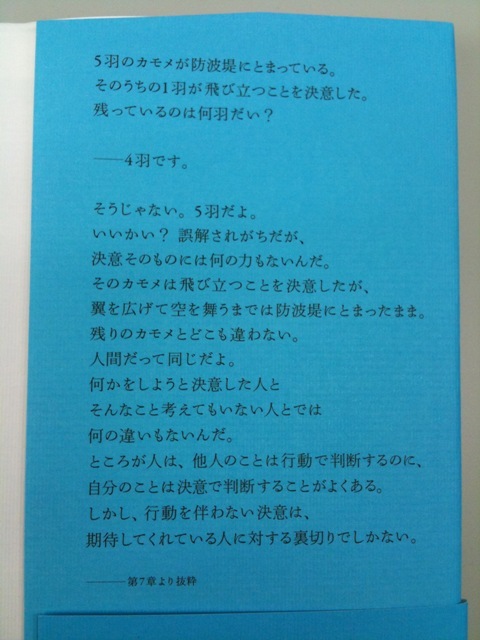 5羽のカモメが防波堤にとまっている。
そのうちの1羽が飛び立つことを決意した。
残っているのは何羽だい？
——4羽です。
そうじゃない。5羽だよ。
いいかい？ 誤解されがちだが、
決意そのものには何の力もないんだ。
そのカモメは飛び立つことを決意したが、
翼を広げて空を舞うまでは防波堤にとまったまま。
残りのカモメとどこも違わない。
人間だって同じだよ。
何かをしようと決意した人と
そんなこと考えてもいない人とでは
何の違いもないんだ。
ところが人は、他人のことは行動で判断するのに、
自分のことは決意で判断することがよくある。
しかし、行動を伴わない決意は、
期待してくれている人に対する裏切りでしかない。
——第7章より抜粋